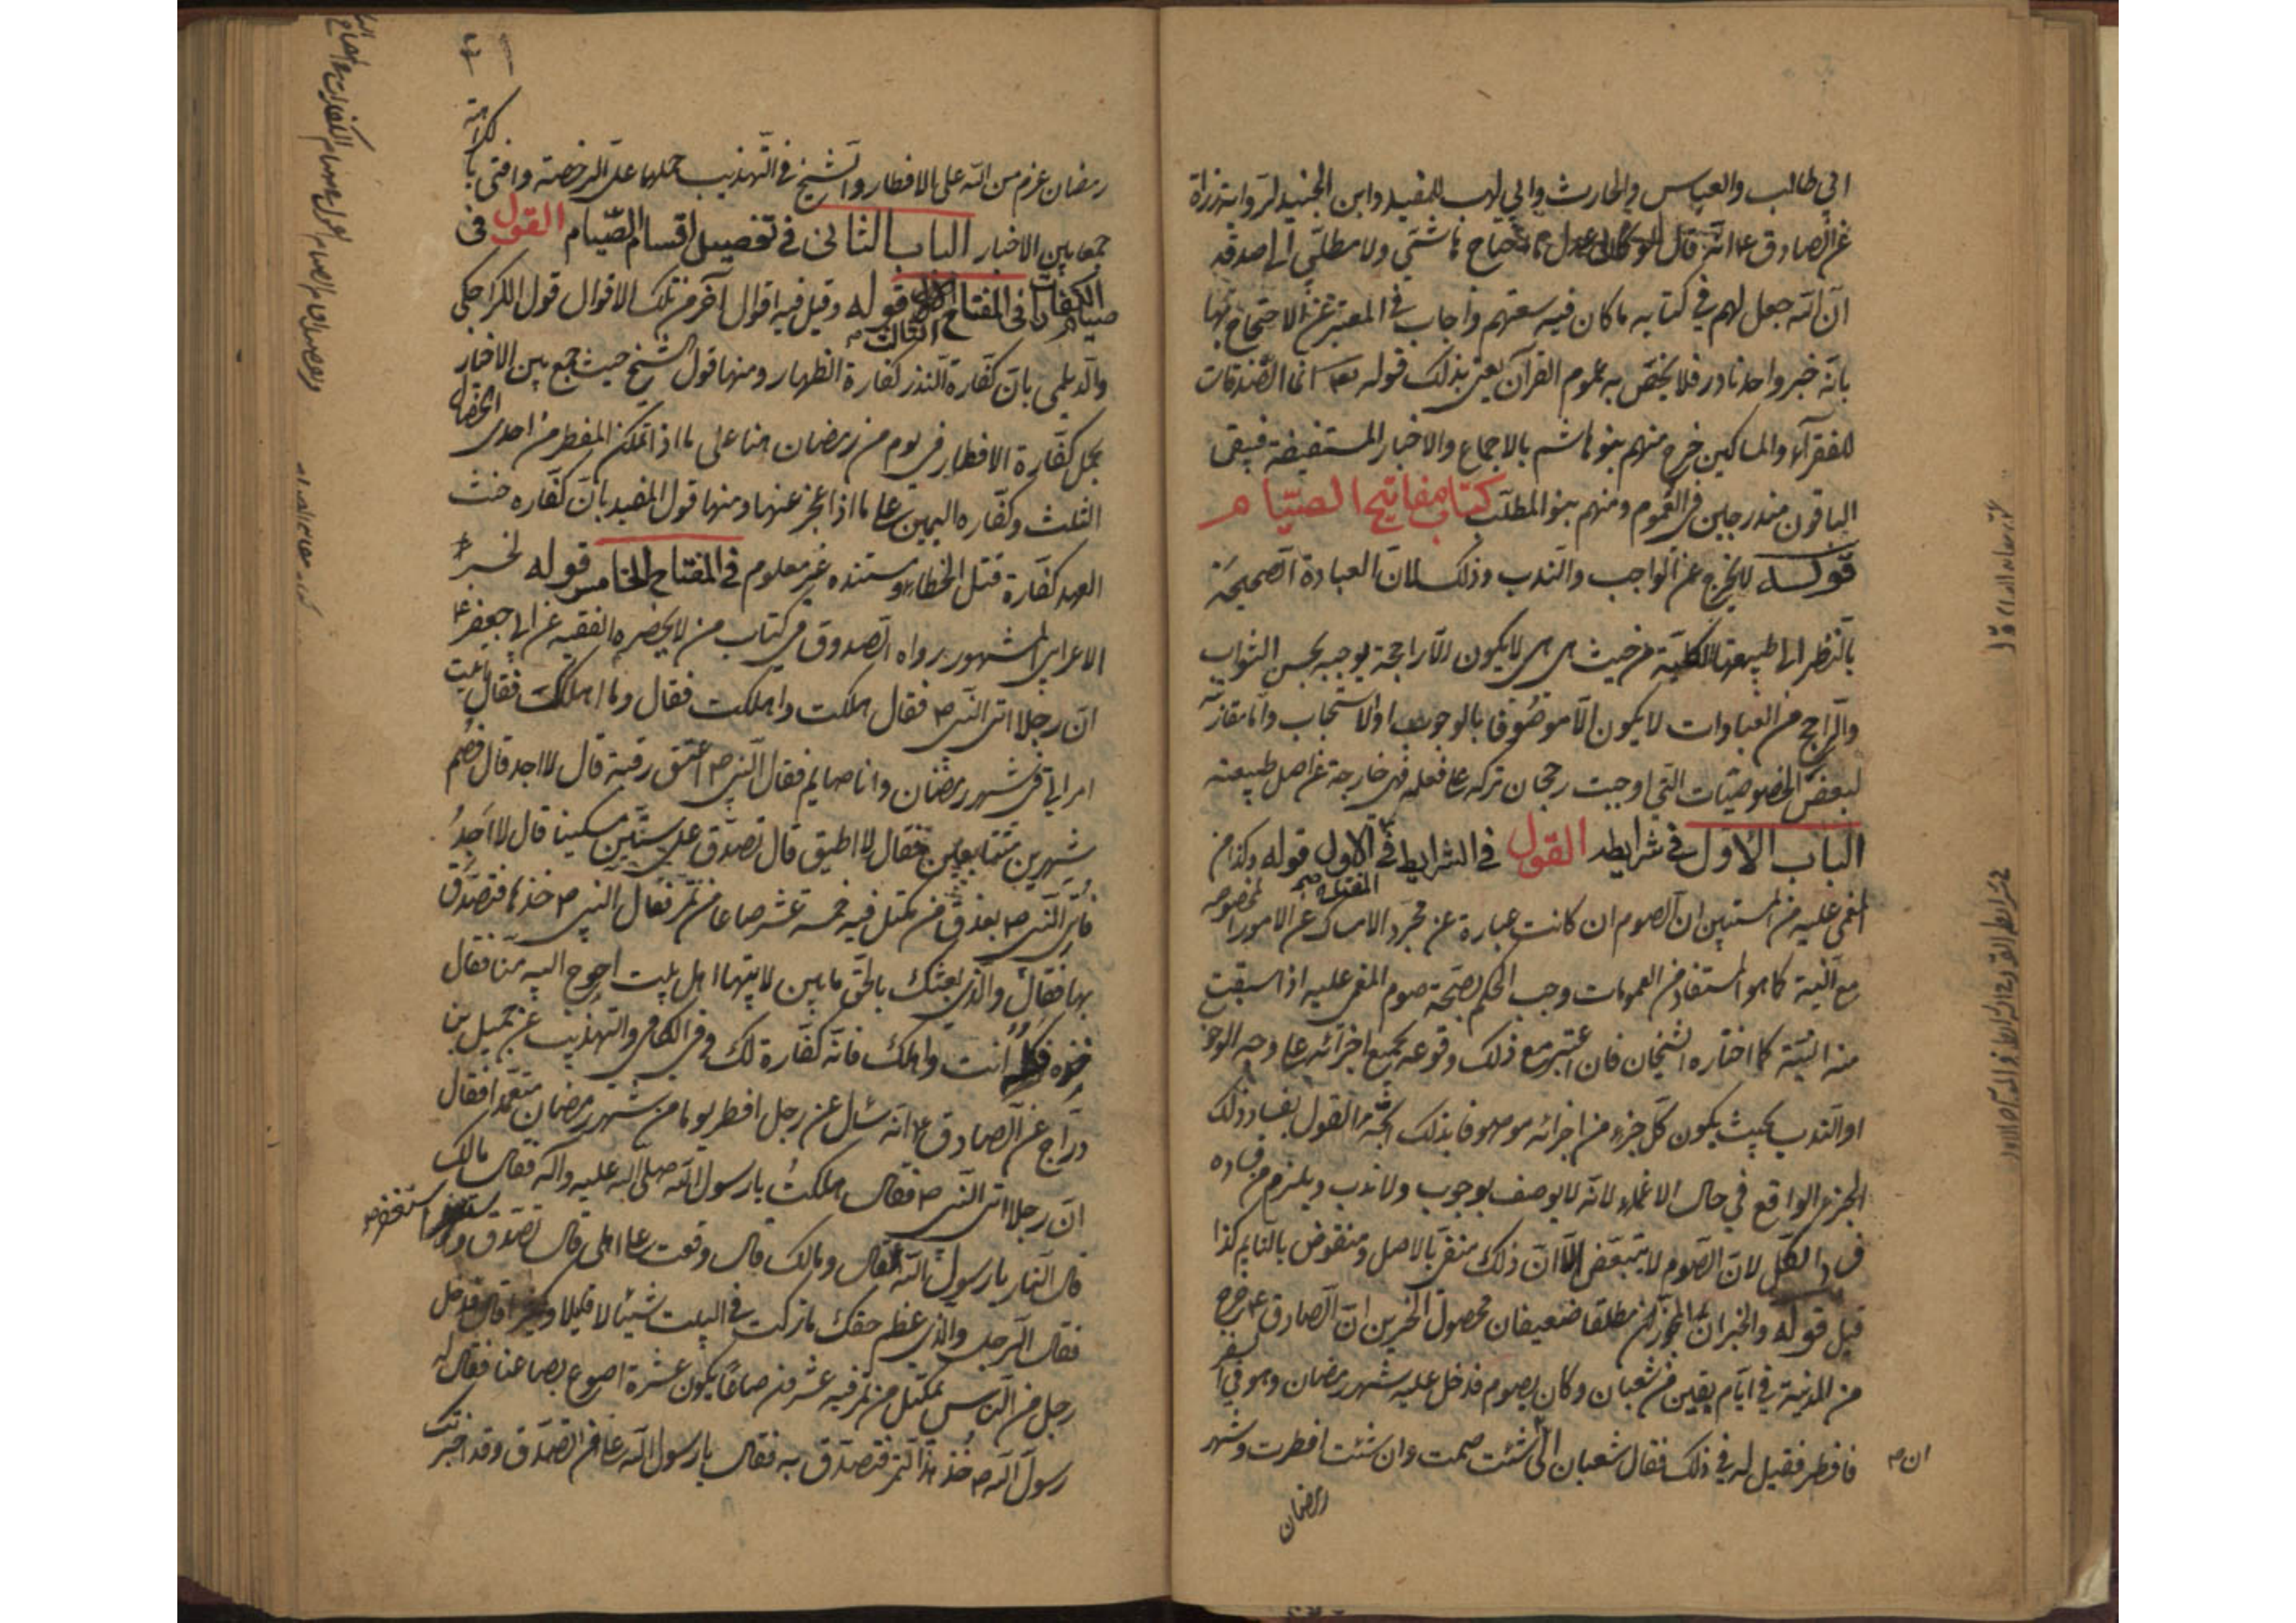 ابي طالب والعباس والحارث وابي لهب للمفيد وابن الجنيد لرواية زرارة
عن الصادق ع انه قال لو كان عدل ما احتاج هاشمي ولا مطلبي الى صدقة
ان الله جعل لهم في كتابه ما كان فيه سعتهم واجاب في المعتبر عن الاحتجاج بها
بانه خبر واحد نادر فلا يخص به عموم القرآن يعني بذلك قوله تعالى انما الصدقات
للفقراء والمساكين خرج منهم بنو هاشم بالاجماع والاخبار المستفيضة فيبقى
الباقون مندرجين في العموم ومنهم بنو المطلب كتاب مفاتيح الصيام
قوله لا يخرج عن الواجب والندب وذلك لان العبادة الصحيحة
بالنظر الى طبيعتها الكلية من حيث هي هي لا يكون الا راجحة يوجبه بحسن الثواب
والراجح من العبادات لا يكون الا موصوفا بالوجوب او الاستحباب واما مقارنة
لبعض الخصوصيات التي اوجبت رجحان تركه على فعله فهي خارجة عن اصل طبيعته
الباب الاول في شرايطه القول في الشرايط في المفتاح الاول قوله وكذا من
المغمى عليه من المستبين ان الصوم ان كانت عبارة عن مجرد الامساك عن الامور المخصوصة
مع النية كما هو المستفاد من العمومات وجب الحكم بصحة صوم المغمى عليه اذا سبقت
منه النية كما اختاره الشيخان فان اعتبر مع ذلك وقوعه بجميع اجزائه على وجه الوجوب
او الندب بحيث يكون كل جزء من اجزائه موصوفا بذلك اتجه القول بفساد ذلك
الجزء الواقع في حال الاغماء لانه لا يوصف بوجوب ولا ندب ويلزم من فساده
فساد الكل لان الصوم لا يتبعض الا ان ذلك منفي بالاصل ومنقوض بالنايم كذا
قيل قوله والخبران المجوزان مطلقا ضعيفان محصول الخبرين ان الصادق ع خرج
من المدينة في ايام بقين من شعبان وكان يصوم فدخل عليه شهر رمضان وهو في السفر
فافطر فقيل له في ذلك فقال شعبان الى ان شئت صمت وان شئت افطرت وشهر
رمضان
رمضان عزم من الله على الافطار والشيخ في التهذيب حملها على الرخصة وافتى بالكراهة
جمعا بين الاخبار الباب الثاني في تفصيل اقسام الصيام القول في
صيام الكفارات في المفتاح الثالث قوله وقيل فيه اقوال آخر من تلك الاقوال قول الكراجكي
والديلمي بان كفارة النذر كفارة الظهار ومنها قول الشيخ حيث جمع بين الاخبار
بحمل كفارة الافطار في يوم من رمضان هنا على ما اذا تمكن المفطر من احدى الخصال
الثلث وكفاره اليمين على ما اذا عجز عنها ومنها قول المفيد بان كفاره حنث
العهد كفارة قتل الخطاء ومستنده غير معلوم في المفتاح الخامس قوله لخبر
الاعرابي المشهور رواه الصدوق في كتاب من لا يحضره الفقيه عن ابي جعفر ع
ان رجلا اتى النبي ص فقال هلكت واهلكت فقال وما اهلكك فقال اتيت
امراتي في شهر رمضان وانا صايم فقال النبي ص اعتق رقبة قال لا اجد قال فصم
شهرين متتابعين فقال لا اطيق قال تصدق على ستين مسكينا قال لا اجد
فاتى النبي ص بعذق من مكتل فيه خمسة عشر صاعا من تمر فقال النبي ص خذها فتصدق
بها فقال والذي بعثك بالحق ما بين لابتيها اهل بيت احوج اليه منا فقال
خذه فكله انت واهلك فانه كفارة لك وفي الكافي والتهذيب عن جميل بن
دراج عن الصادق ع انه سئل عن رجل افطر يوما من شهر رمضان متعمدا فقال
ان رجلا اتى النبي ص فقال هلكت يا رسول الله صلى الله عليه وآله فقال مالك
قال النار يا رسول الله قال ومالك قال وقعت على اهلي قال تصدق واستغفر
فقال الرجل والذي عظم حقك ما تركت في البيت شيئا لا قليلا ولا كثيرا قال فدخل
رجل من الناس بمكتل من تمر فيه عشرون صاعا يكون عشرة اصوع بصاعنا فقال له
رسول الله ص خذ هذا التمر فتصدق به فقال يا رسول الله على من اتصدق وقد اخبرتك